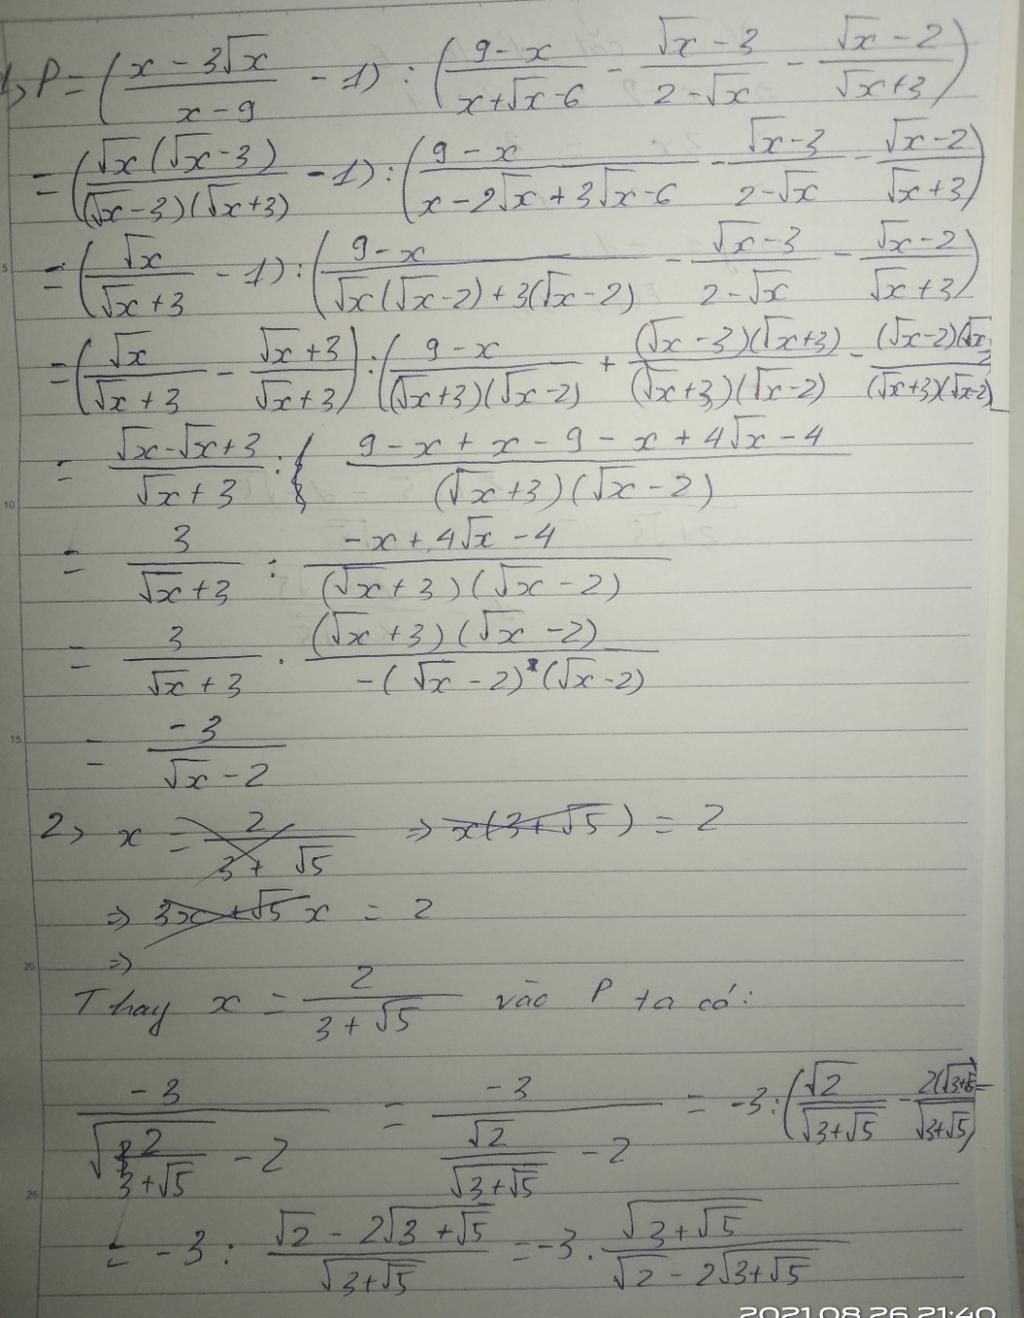 1> P = ( (x - 3√x)/(x - 9) - 1) : ( (9 - x)/(x + √x - 6) - (√x - 3)/(2 - √x) - (√x - 2)/(√x + 3) )
= ( (√x (√x - 3))/((√x - 3)(√x + 3)) - 1) : ( (9 - x)/(x - 2√x + 3√x - 6) - (√x - 3)/(2 - √x) - (√x - 2)/(√x + 3) )
= ( √x/(√x + 3) - 1) : ( (9 - x)/(√x(√x - 2) + 3(√x - 2)) - (√x - 3)/(2 - √x) - (√x - 2)/(√x + 3) )
= ( √x/(√x + 3) - (√x + 3)/(√x + 3) ) : ( (9 - x)/((√x + 3)(√x - 2)) + ((√x - 3)(√x + 3))/((√x + 3)(√x - 2)) - ((√x - 2)(√x 2)/((√x + 3)(√x - 2))
= (√x - √x + 3)/(√x + 3) : (9 - x + x - 9 - x + 4√x - 4)/((√x + 3)(√x - 2))
= 3/(√x + 3) : (-x + 4√x - 4)/((√x + 3)(√x - 2))
= 3/(√x + 3) . ((√x + 3)(√x - 2))/(-(√x - 2)(√x - 2))
= -3/(√x - 2)
2> x = 2/(3 + √5) => x(3 + √5) = 2
=> 3x + √5 x = 2
=>
Thay x = 2/(3 + √5) vào P ta có:
-3/(√(2/(3 + √5)) - 2) = -3/(√2/√(3 + √5) - 2) = -3 : ( √2/√(3 + √5) - 2(√3+√5/√(3+√5) ) =
= -3 : (√2 - 2√(3 + √5))/√(3 + √5) = -3 . √(3 + √5)/(√2 - 2√(3 + √5))
2021.08.26 21:40